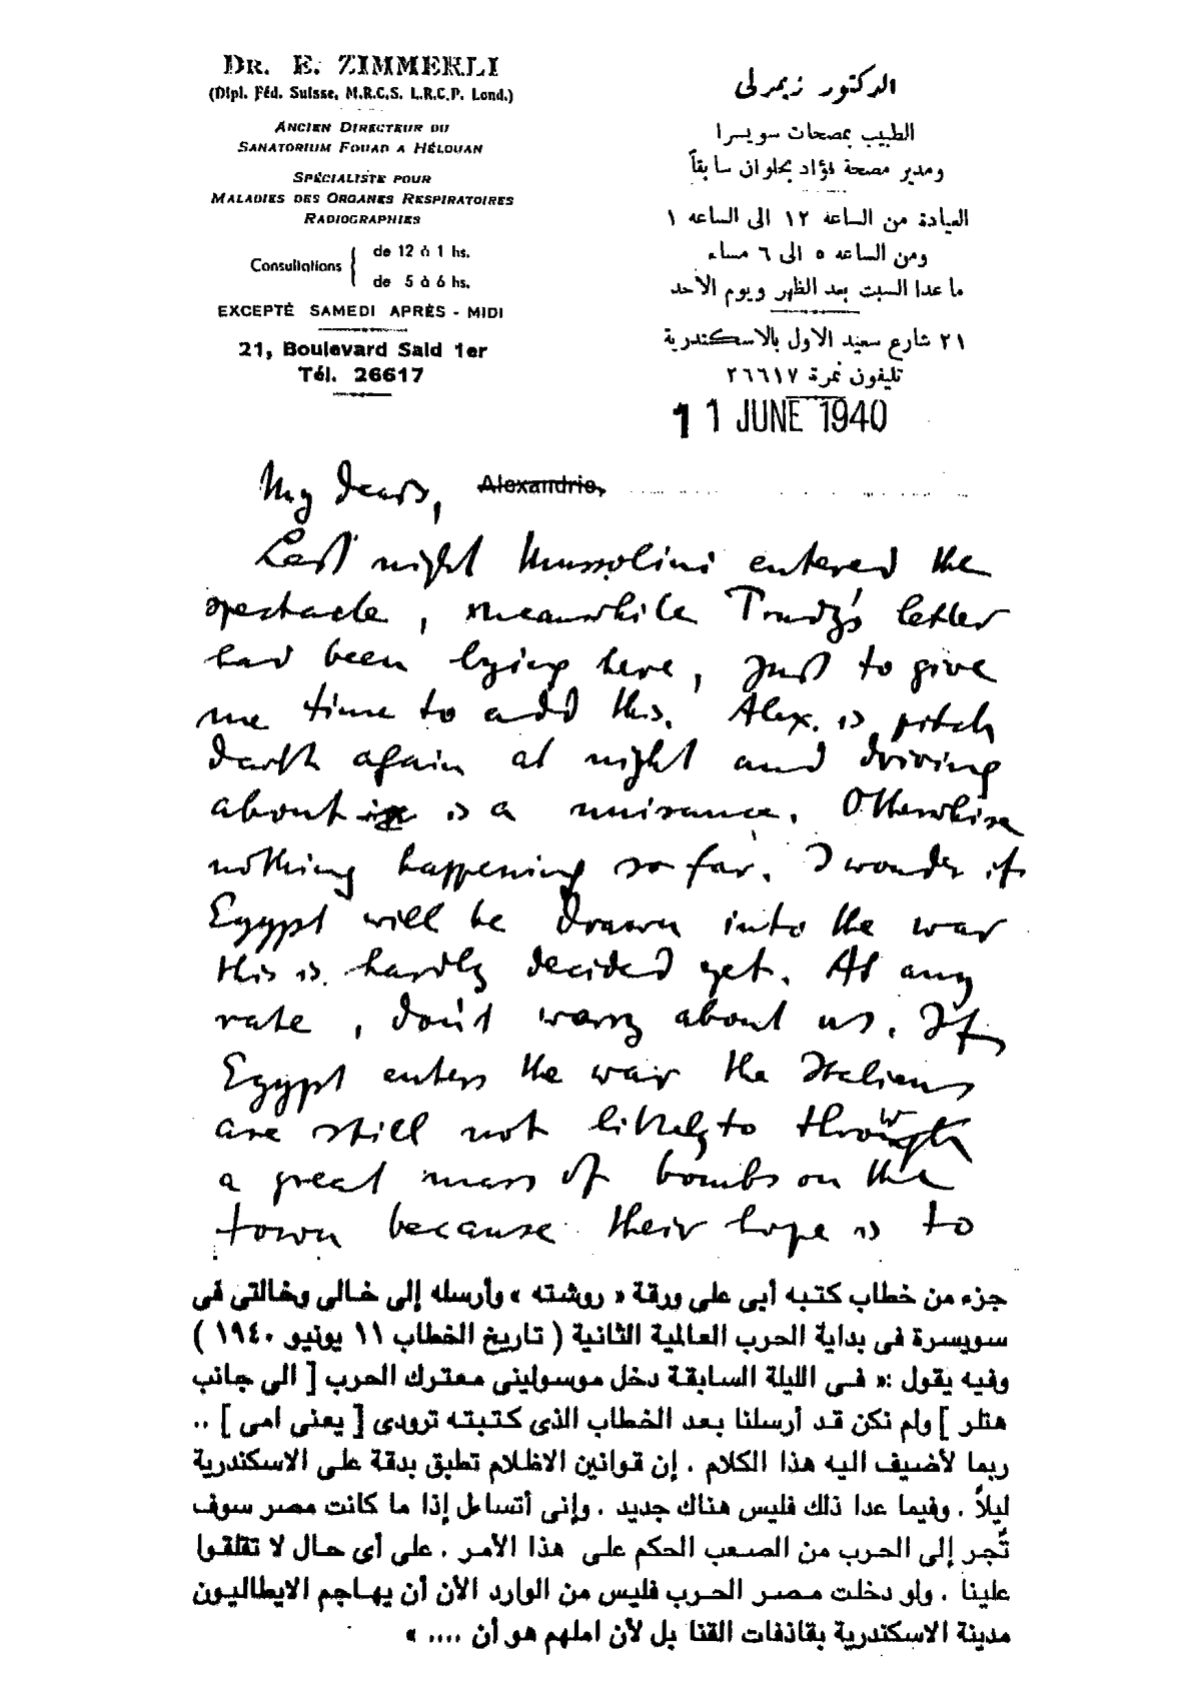 DR. E. ZIMMERLI
(Dipl. Féd. Suisse, M.R.C.S. L.R.C.P. Lond.)
ANCIEN DIRECTEUR DU
SANATORIUM FOUAD A HÉLOUAN
SPÉCIALISTE POUR
MALADIES DES ORGANES RESPIRATOIRES
RADIOGRAPHIES
Consultations { de 12 à 1 hs.
de 5 à 6 hs.
EXCEPTÉ SAMEDI APRÈS - MIDI
21, Boulevard Said 1er
Tél. 26617
الدكتور زيمرلى
الطبيب بمصحات سويسرا
ومدير مصحة فؤاد بحلوان سابقاً
العيادة من الساعه ١٢ الى الساعه ١
ومن الساعه ٥ الى ٦ مساء
ما عدا السبت بعد الظهر ويوم الاحد
٢١ شارع سعيد الاول بالاسكندرية
تليفون نمرة ٢٦٦١٧
11 JUNE 1940
My dears, Alexandrie,
Last night Mussolini entered the
spectacle, meanwhile Trudy's letter
had been lying here, just to give
me time to add this. Alex. is pitch
dark again at night and driving
about is a nuisance. Otherwise
nothing happening so far. I wonder if
Egypt will be drawn into the war
this is hardly decided yet. At any
rate, don't worry about us. If
Egypt enters the war the Italiens
are still not likely to throw
a great mass of bombs on the
town because their hope is to
جزء من خطاب كتبه أبى على ورقة « روشته » وأرسله إلى خالى وخالتى فى
سويسرة فى بداية الحرب العالمية الثانية ( تاريخ الخطاب ١١ يونيو ١٩٤٠ )
وفيه يقول :« فى الليلة السابقة دخل موسولينى معترك الحرب [ الى جانب
هتلر ] ولم نكن قد أرسلنا بعد الخطاب الذى كتبته ترودى [ يعنى امى ] ..
ربما لأضيف اليه هذا الكلام . إن قوانين الاظلام تطبق بدقة على الاسكندرية
ليلاً . وفيما عدا ذلك فليس هناك جديد . وإنى أتساءل إذا ما كانت مصر سوف
تُجر إلى الحرب من الصعب الحكم على هذا الأمر . على أى حال لا تقلقوا
علينا . ولو دخلت مصر الحرب فليس من الوارد الأن أن يهاجم الايطاليون
مدينة الاسكندرية بقاذفات القنا بل لأن املهم هو أن .... »